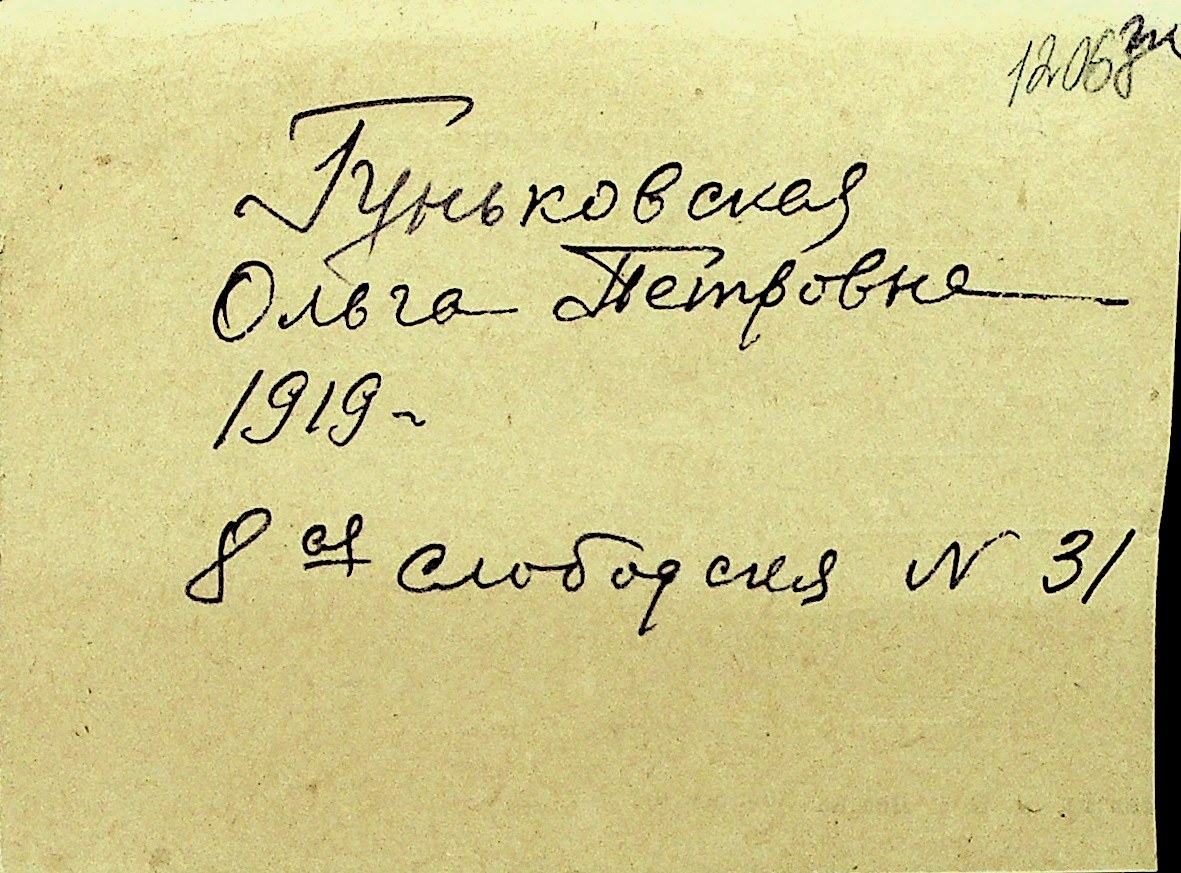 Гуньковская
Ольга Петровна
1919 г
8 ая Слободская N 31